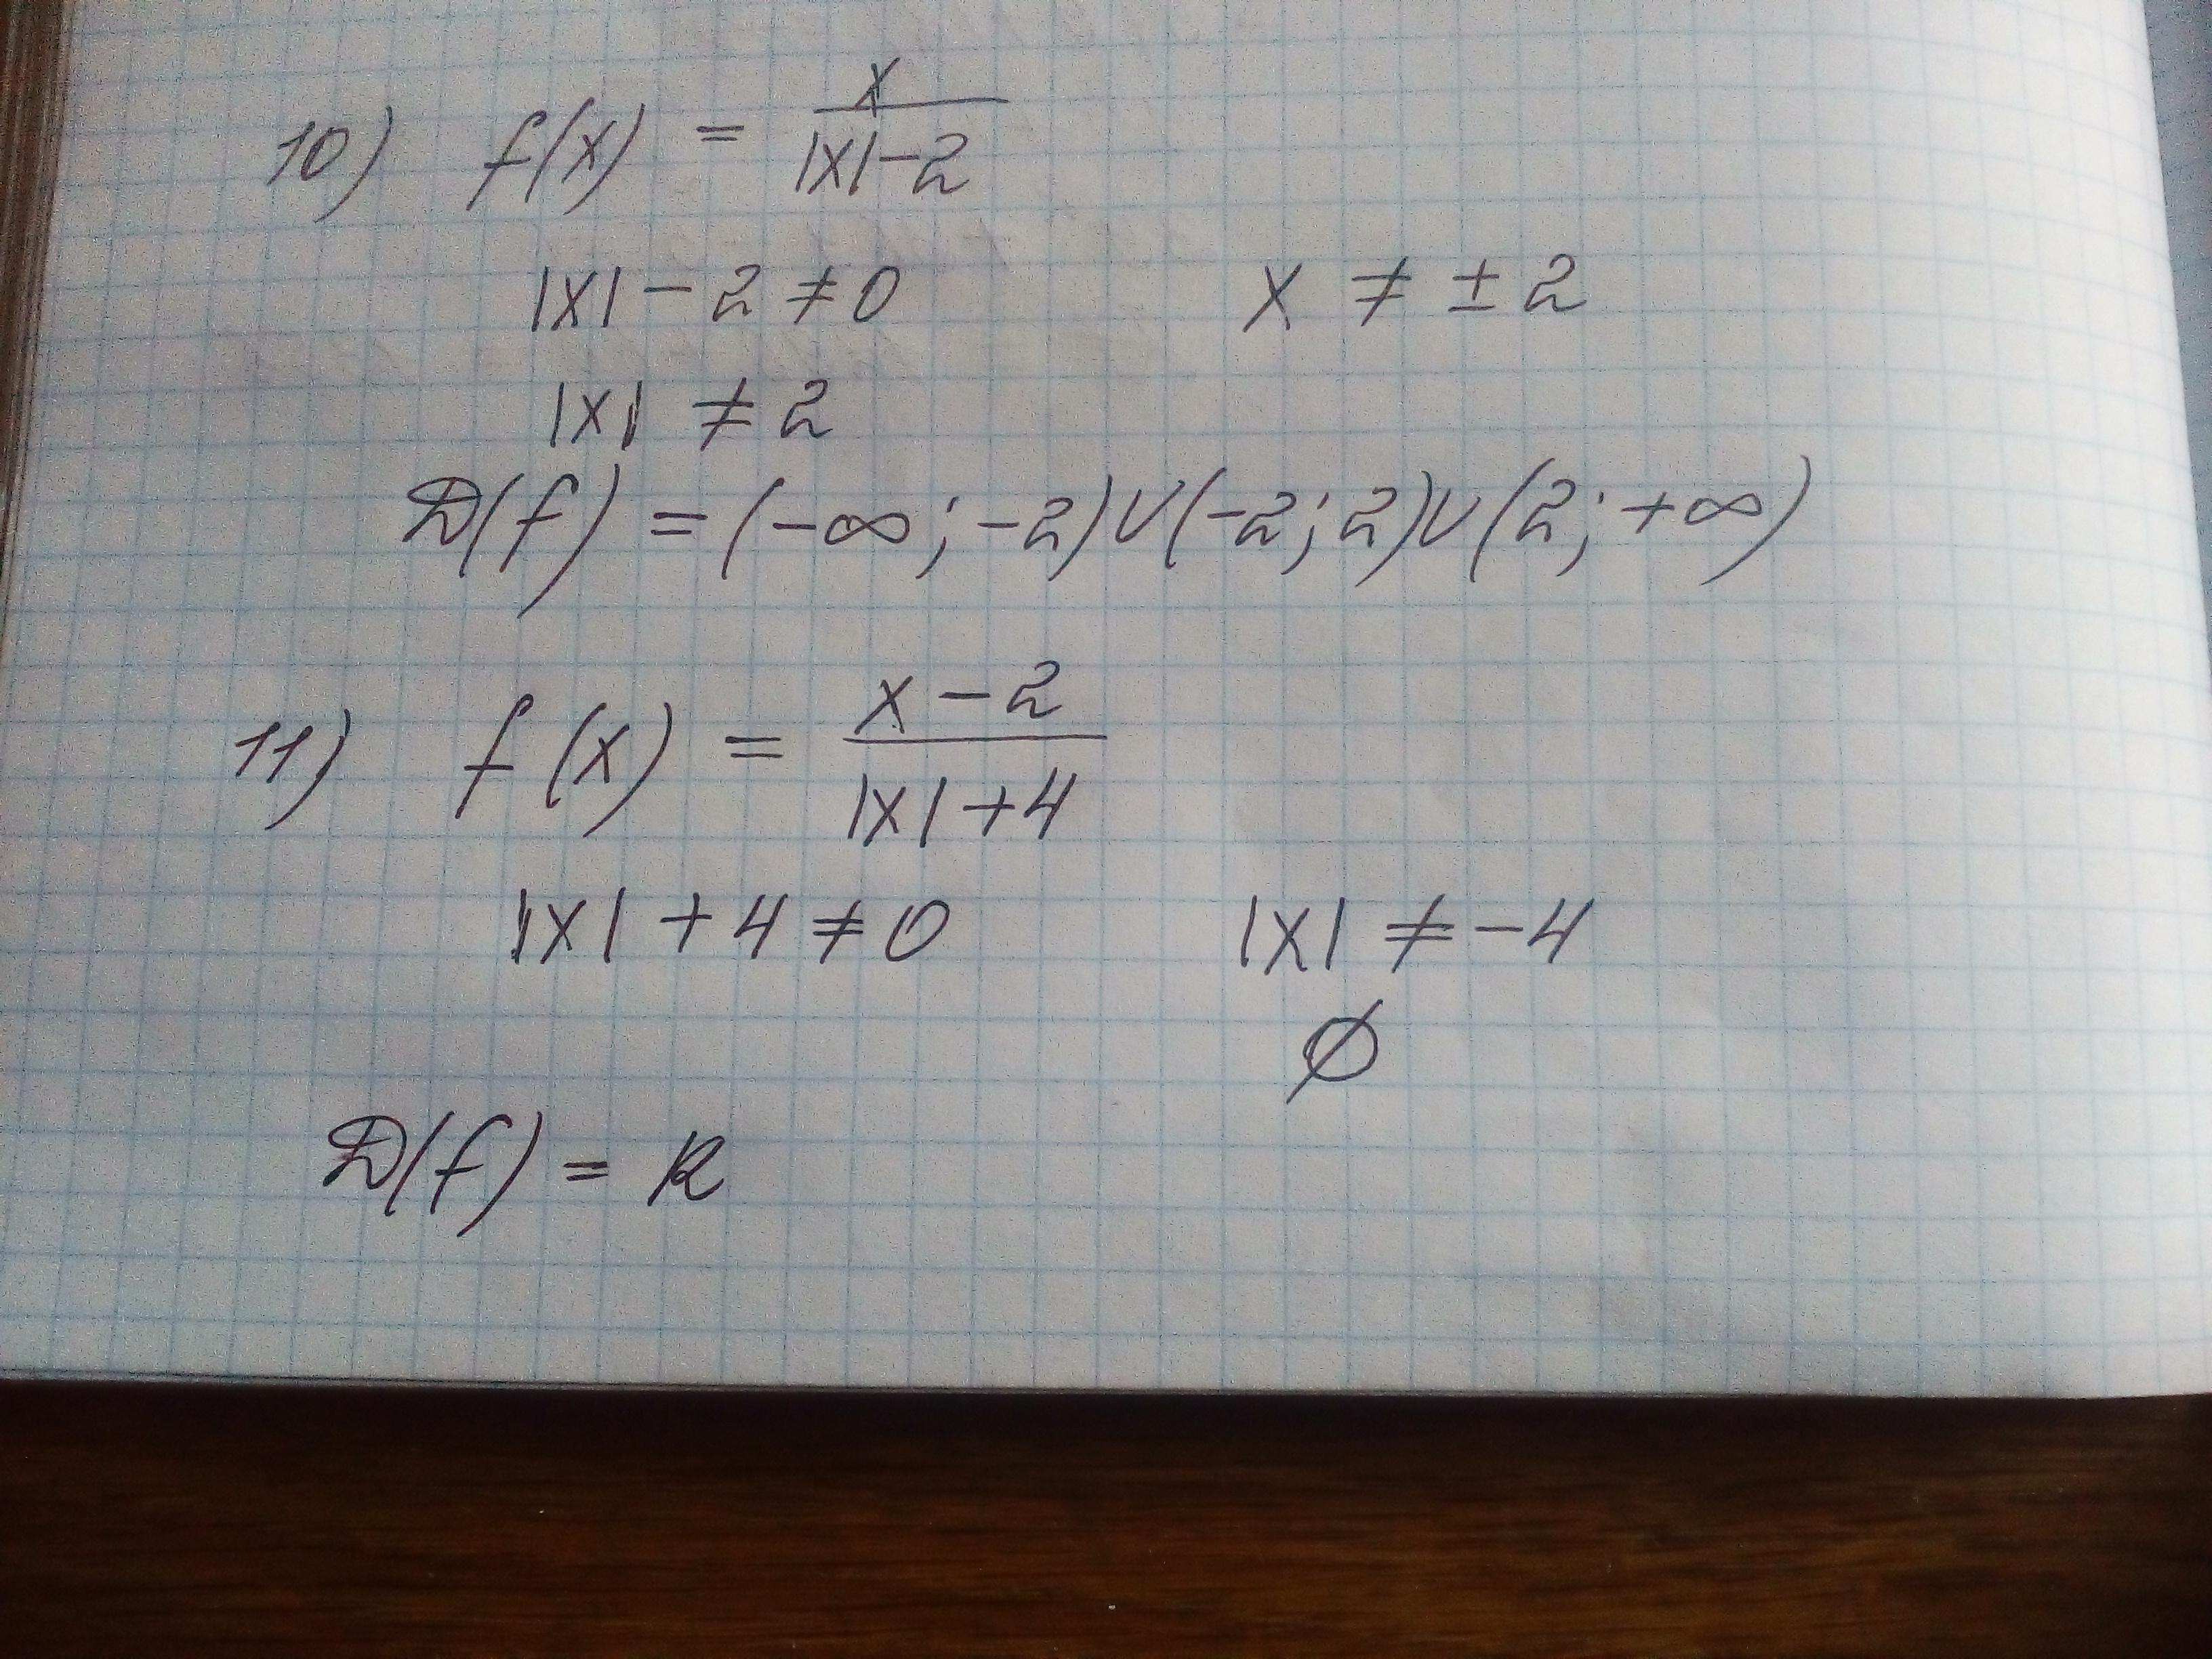 10) f(x) = x / (|x| - 2)
|x| - 2 ≠ 0 x ≠ ± 2
|x| ≠ 2
D(f) = (-∞; -2) ∪ (-2; 2) ∪ (2; +∞)
11) f(x) = (x - 2) / (|x| + 4)
|x| + 4 ≠ 0 |x| ≠ -4
∅
D(f) = R